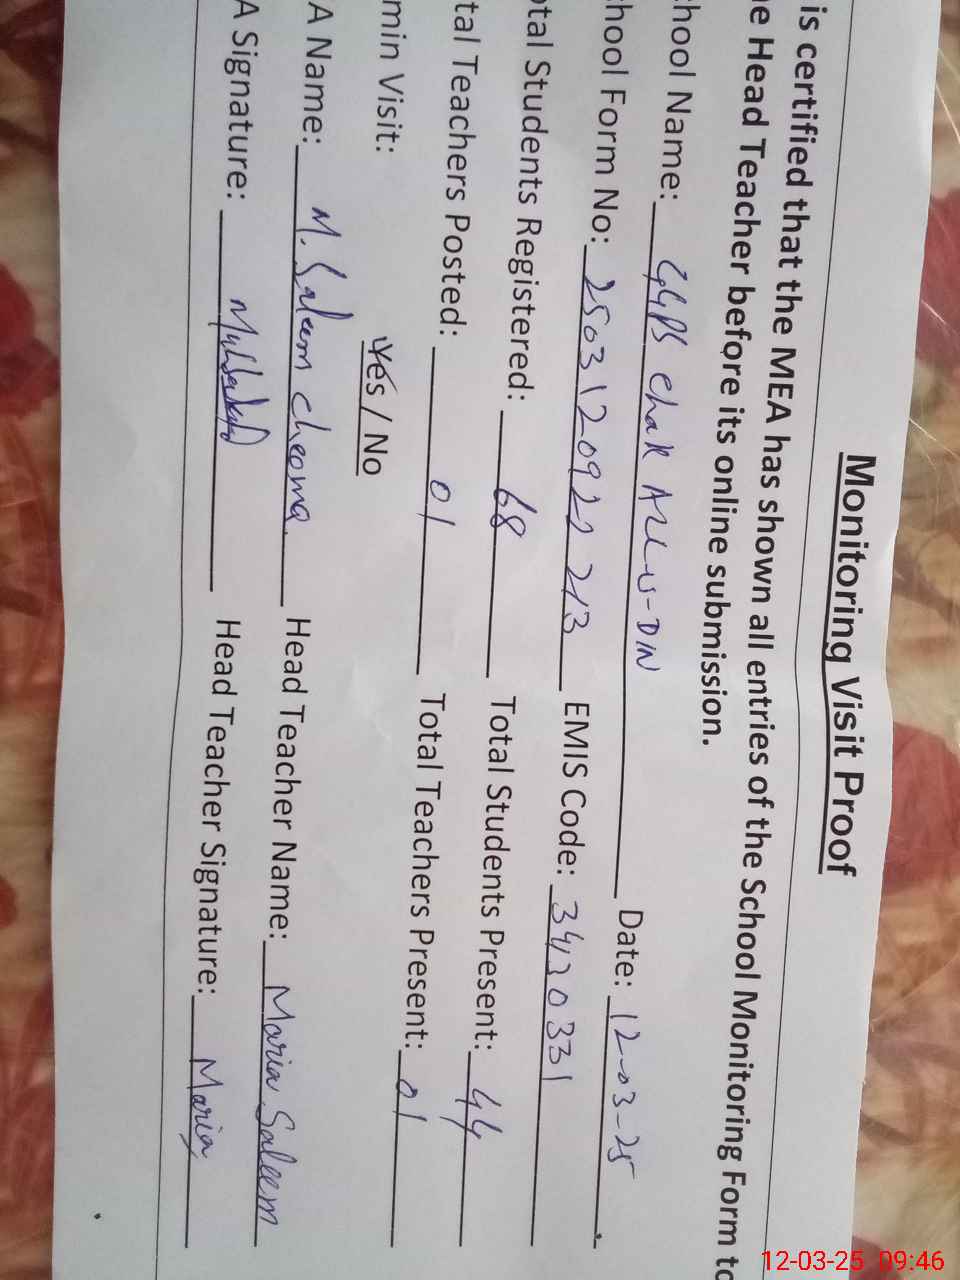 Monitoring Visit Proof
is certified that the MEA has shown all entries of the School Monitoring Form to
e Head Teacher before its online submission.
hool Name: GGPS Chak Azu-u-DIN Date: 12-03-25
hool Form No: 25031209222213 EMIS Code: 34130331
otal Students Registered: 68 Total Students Present: 44
tal Teachers Posted: 01 Total Teachers Present: 01
min Visit: Yes / No
A Name: M. Saleem cheema Head Teacher Name: Maria Saleem
A Signature: Head Teacher Signature: Maria
12-03-25 09:46